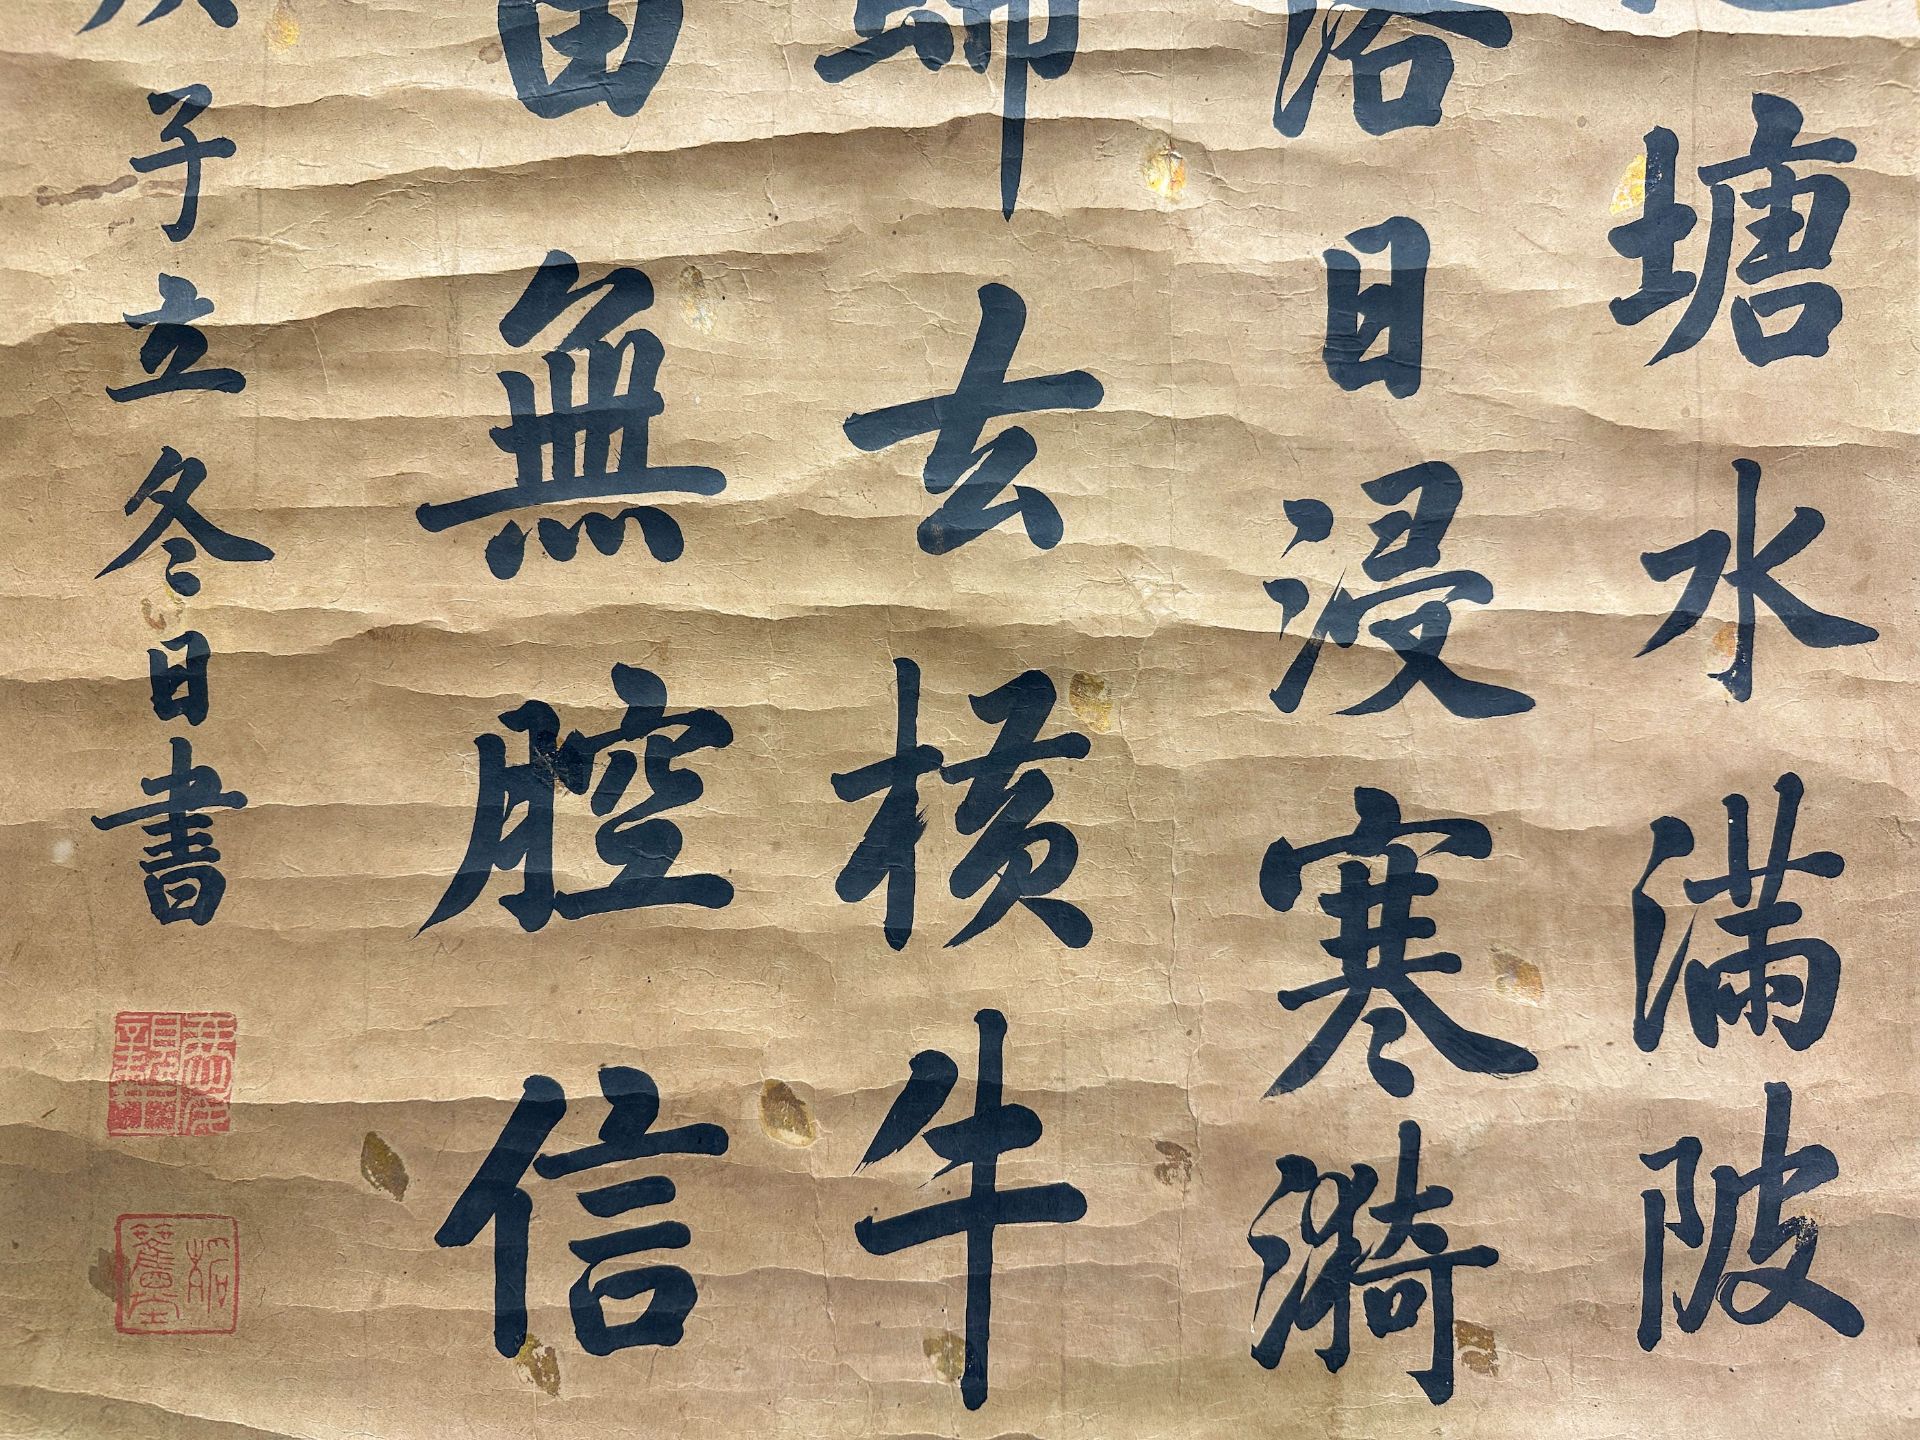 塘水滿陂
落日浸寒漪
歸去橫牛
笛無腔信
子立冬日書